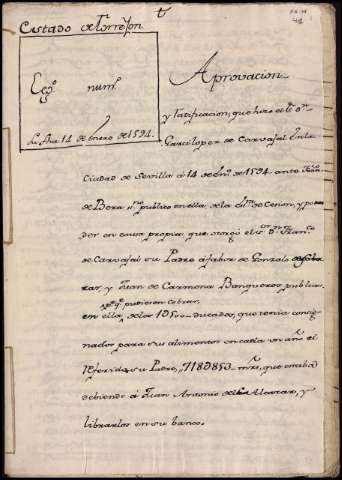 Estado de Torrejon.
Leg.º num.º
Su fha 14 de enero de 1594.
Aprovacion
y ratificacion, que hizo el S.r D.n
Garcilopez de Carvajal en la
Ciudad de Sevilla á 14 de En.º de 1594. ante
de Vera ss.no publico en ella, de la de Cesion, y poder
en causa propia, que otorgó el S.or D.n Fran.co
de Carvajal su Padre á favor de Gonzalo de
y Juan de Carmona Banqueros publicos
p.ª q.e pudiesen cobrar,
en ella, de los 1500 Ducados, que tenia consignados
para sus alimentos en cada un año el
referido su Padre, 718D853 mrs, que estaba
debiendo á Juan Antonio del Alcazar, y
librarlos en su banco.